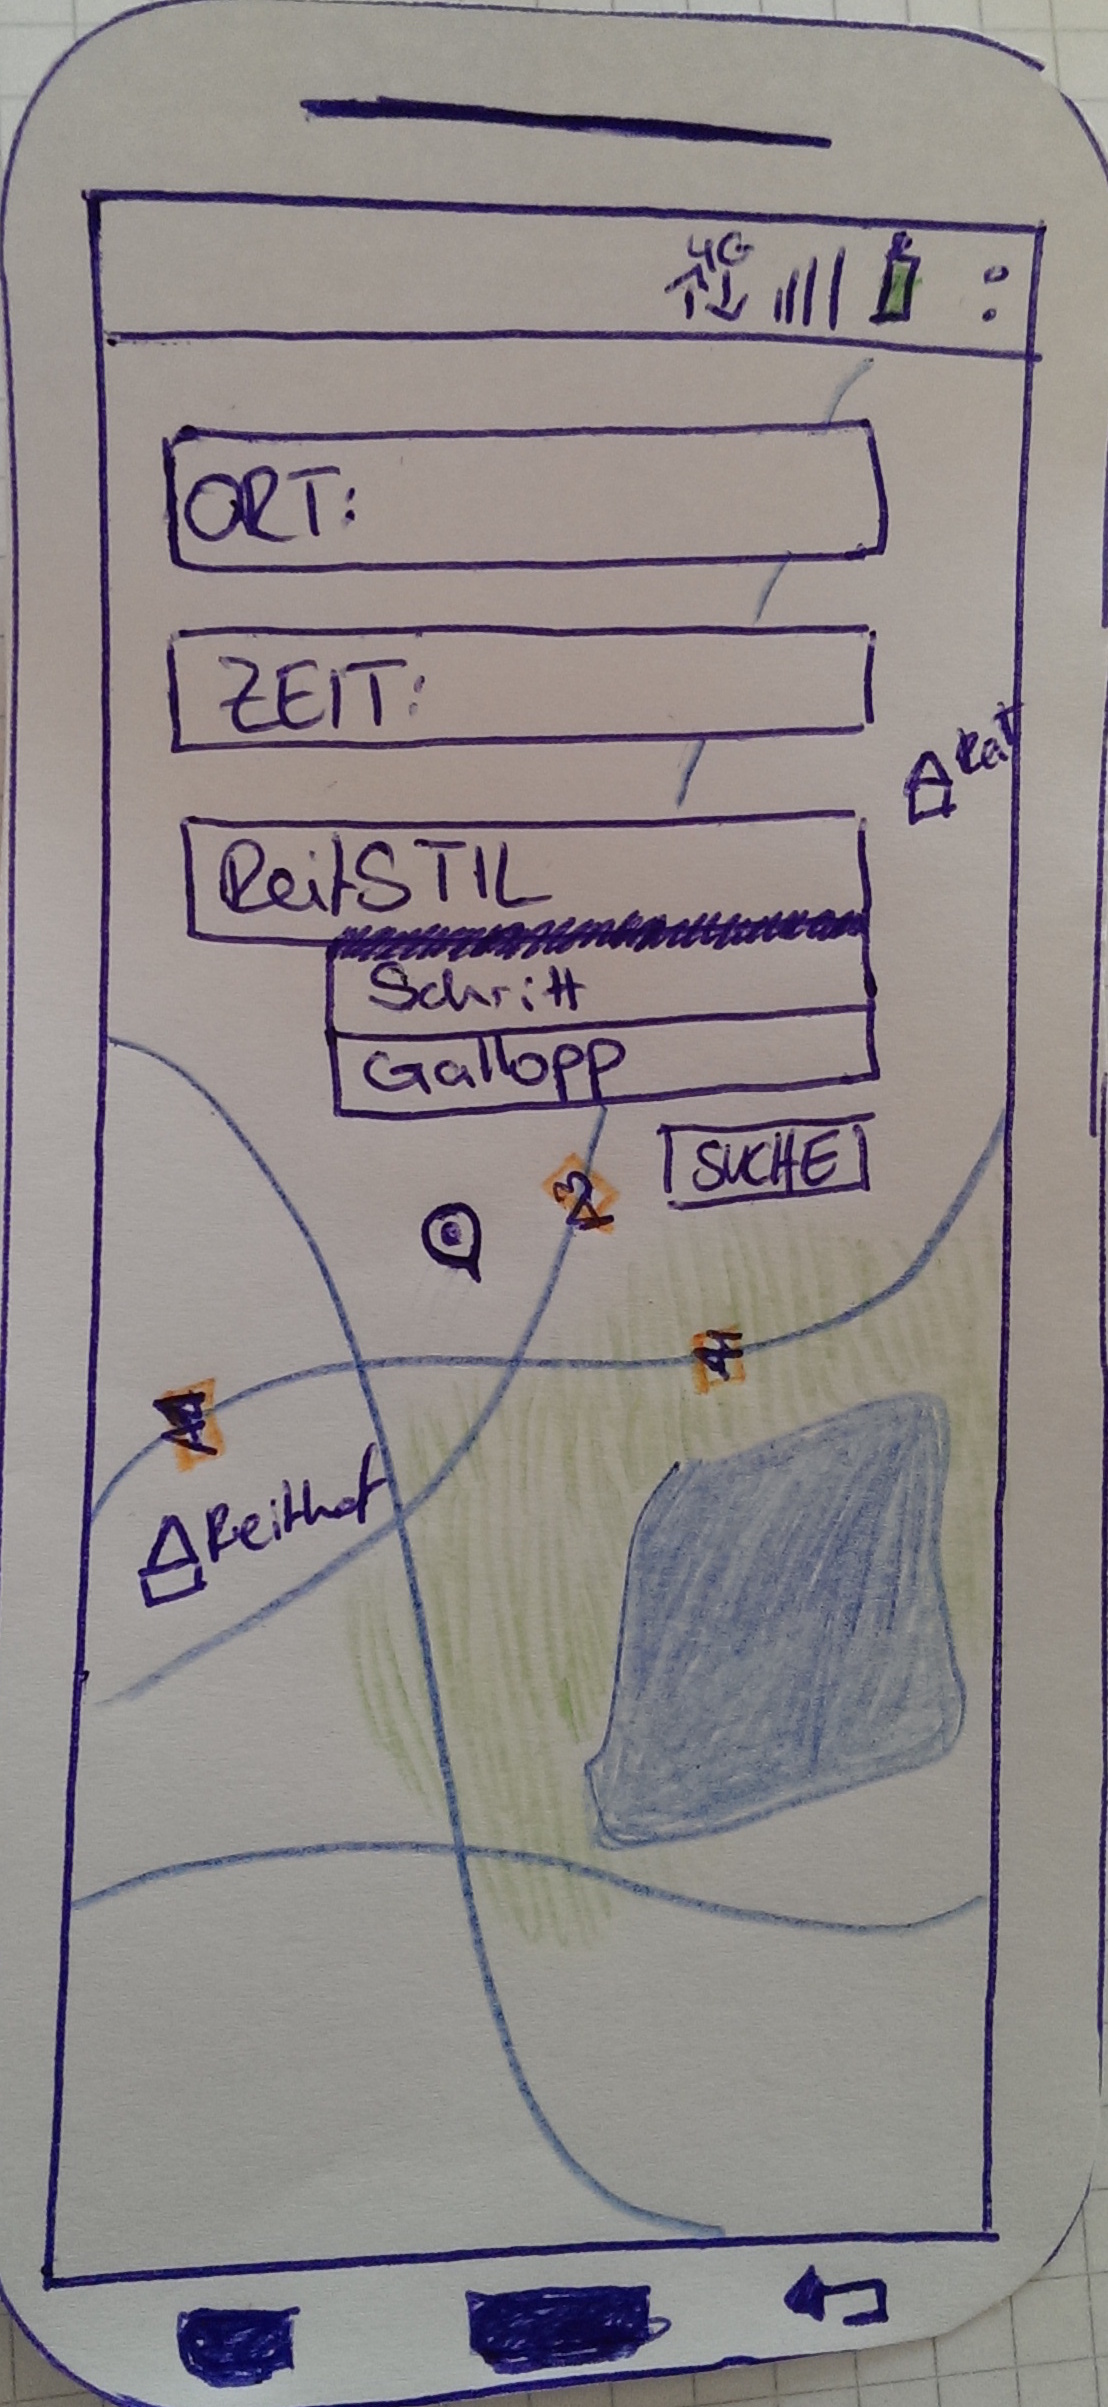 4G
ORT:
ZEIT:
ReitSTIL
Schritt
Gallopp
SUCHE
2
Reithof